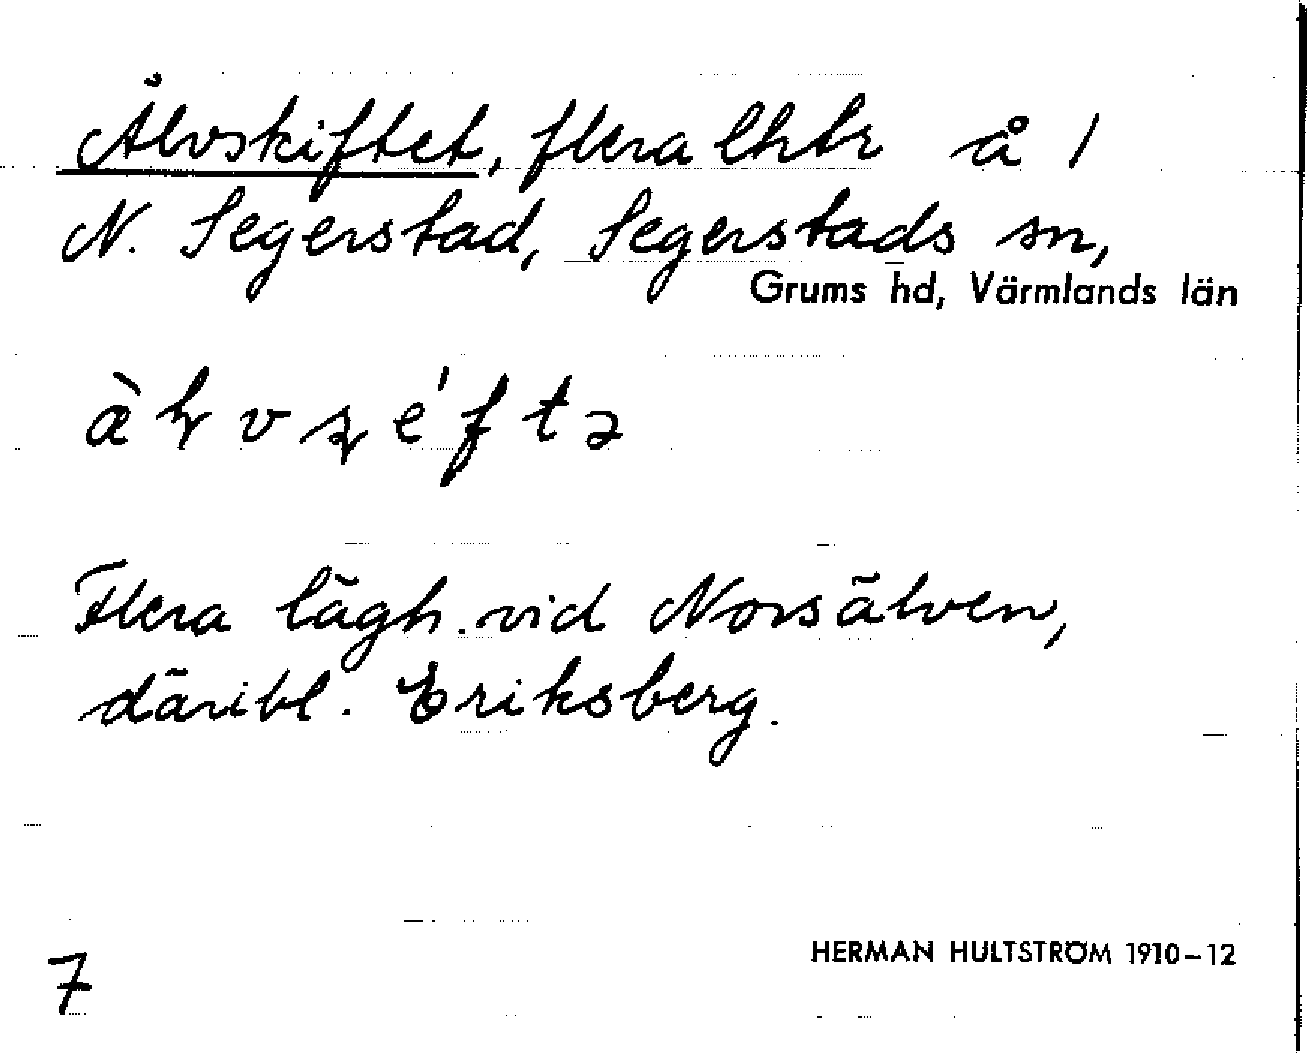 Älvskiftet, flera lhtr å 1
N. Segerstad, Segerstads sn,
Grums hd, Värmlands län
Flera lägh. vid Norsälven,
däribl. Eriksberg.
HERMAN HULTSTRÖM 1910–12
7